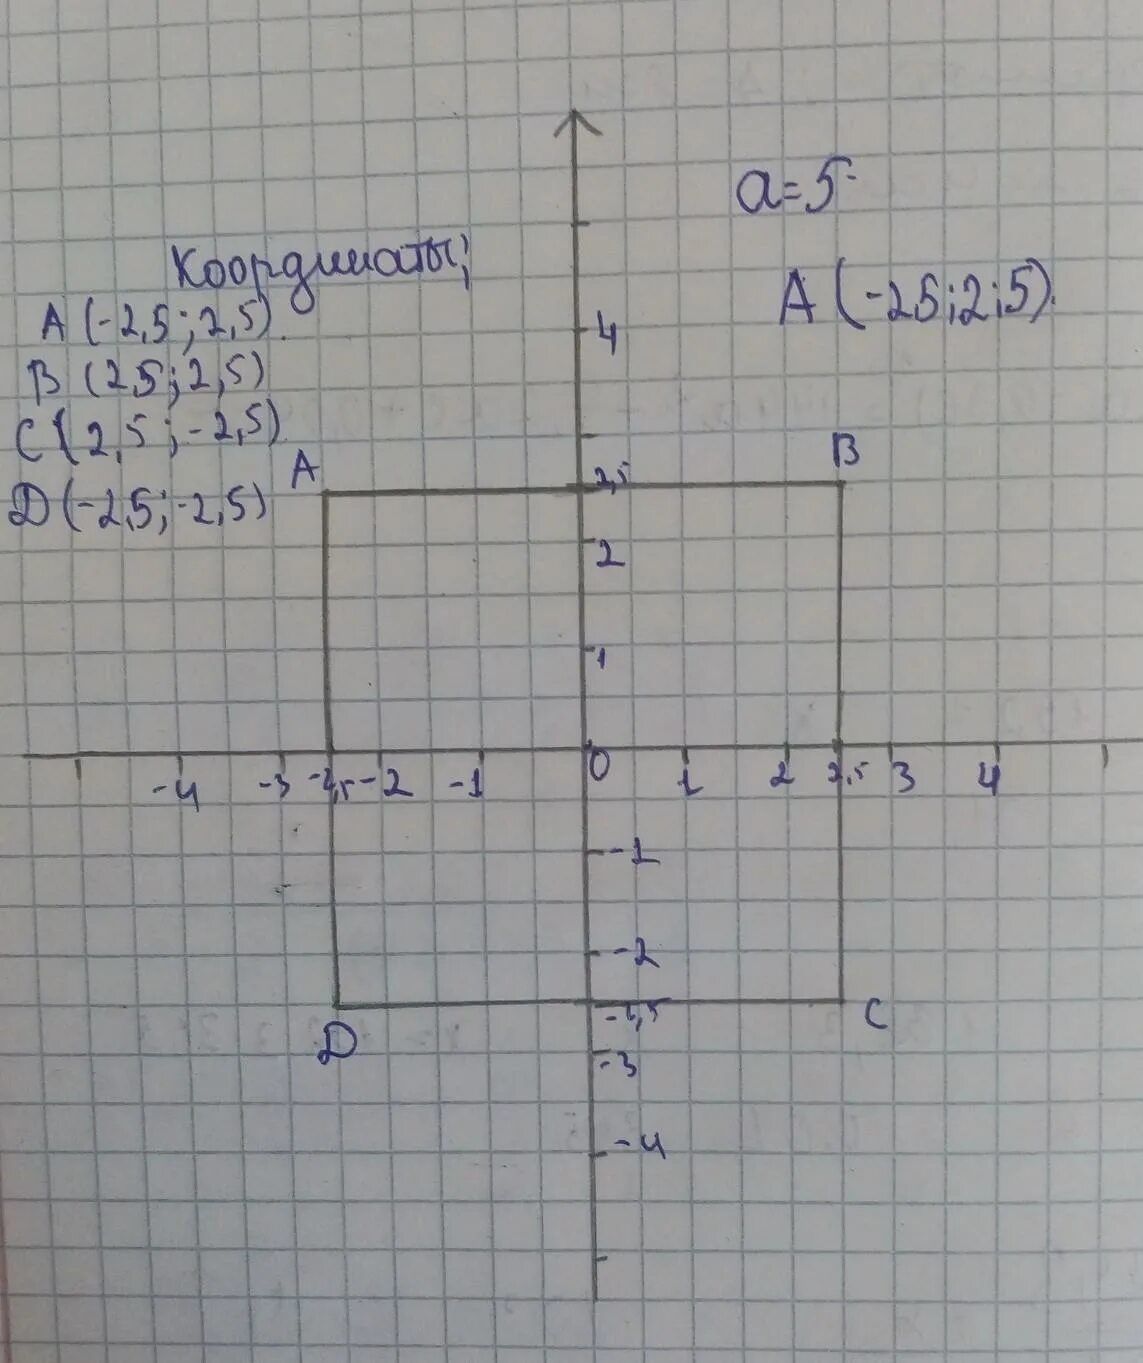 a=5
Координаты;
A (-2,5; 2,5).
A (-25;2;5).
B (2,5; 2,5)
C (2,5; -2,5)
D (-2,5; -2,5)
4
A
B
2,5
2
1
-4 -3 -2,5 -2 -1 0 1 2 2,5 3 4
-1
-2
-2,5
D
C
-3
-4